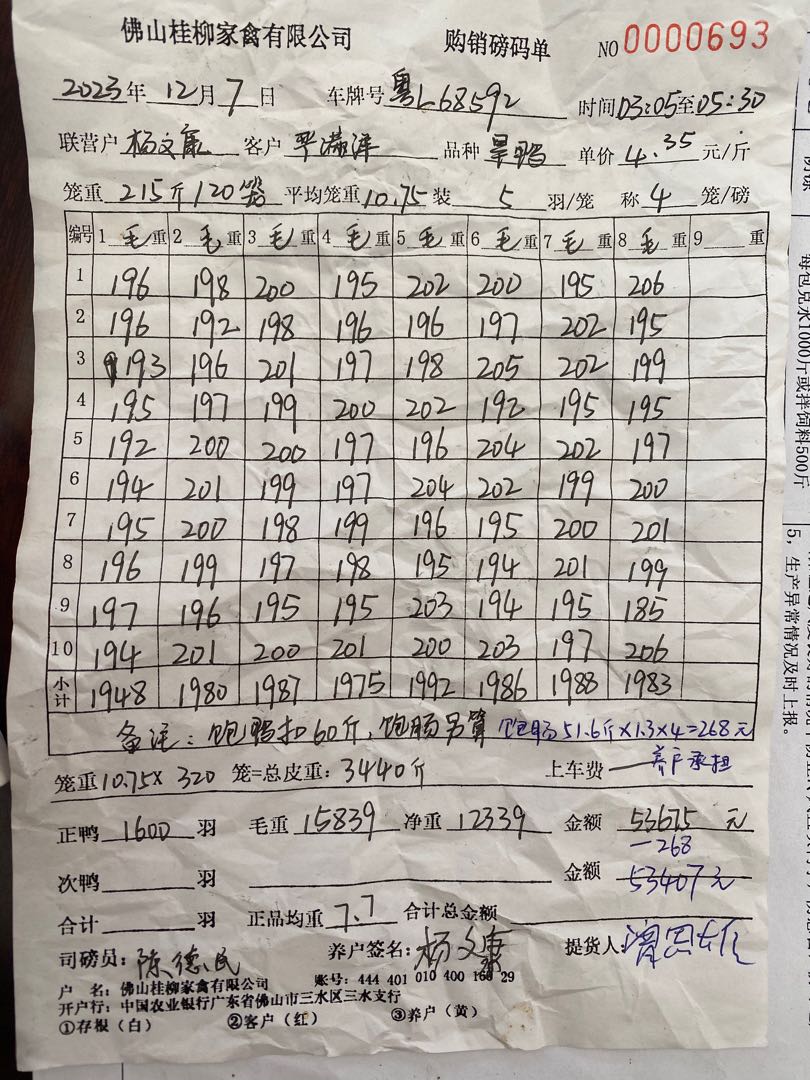 佛山桂柳家禽有限公司 购销磅码单 NO 0000693
2023年 12月 7日 车牌号 粤L68592 时间 03:05至05:30
联营户 杨文康 客户 品种 旱鸭 单价 4.35 元/斤
笼重 215斤/20笼 平均笼重 10.75 装 5 羽/笼 称 4 笼/磅
编号 1 毛 重 2 毛 重 3 毛 重 4 毛 重 5 毛 重 6 毛 重 7 毛 重 8 毛 重 9 重
1 196 198 200 195 202 200 195 206
2 196 192 198 196 196 197 202 195
3 193 196 201 197 198 205 202 199
4 195 197 199 200 202 192 195 195
5 192 200 200 197 196 204 202 197
6 194 201 199 197 204 202 199 200
7 195 200 198 199 196 195 200 201
8 196 199 197 198 195 194 201 199
9 197 196 195 195 203 194 195 185
10 194 201 200 201 200 203 197 206
小计 1948 1980 1987 1975 1992 1986 1988 1983
备注：饱鸭扣60斤，饱肠另算 饱肠51.6斤×1.3×4=268元
笼重10.75× 320 笼=总皮重：3440斤 上车费 养户承担
正鸭 1600 羽 毛重 15839 净重 12339 金额 53675 元
-268
次鸭 羽 金额 53407元
合计 羽 正品均重 7.7 合计总金额
司磅员：陈德民 养户签名：杨文康 提货人：
户 名：佛山桂柳家禽有限公司 账号：444 401 010 400 166 29
开户行：中国农业银行广东省佛山市三水区三水支行
①存根（白） ②客户（红） ③养户（黄）
每包兑水1000斤或拌饲料500斤
5，生产异常情况及时上报。